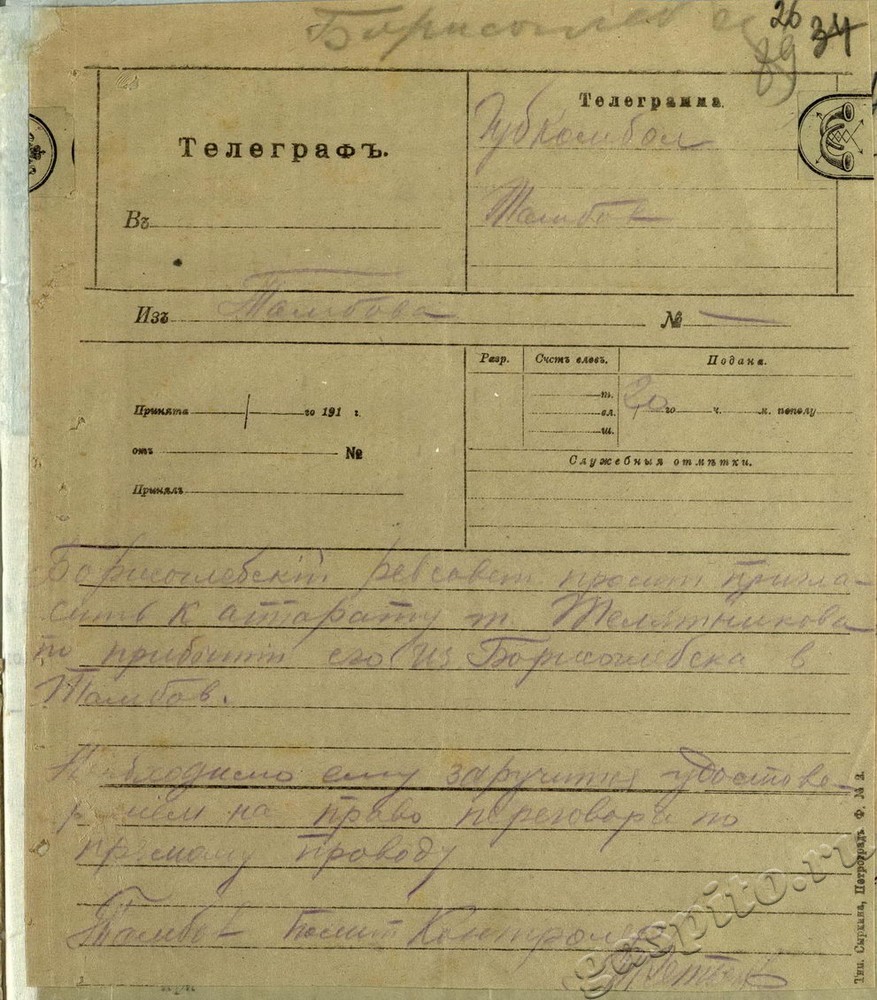 Борисоглеб
26
89 34
Телеграфъ.
Въ
Телеграмма.
Губкомбол
Тамбов
Изъ Тамбова №
Принята го 191 г.
отъ №
Принялъ
Разр. Счетъ словъ. Подана.
т.
сл.
ш.
20 го ч. м. пополу
Служебныя отмѣтки.
Борисоглебскій ревсовет просит пригла-
сить к аппарату т. Желятникова
по прибытіи его из Борисоглебска в
Тамбов.
Необходимо ему заручится удостове-
ренiем на право переговора по
прямому проводу
Тамбов Полит Контролер
Тип. Сыркина, Петроградъ. Ф. № 3.
gaspito.ru